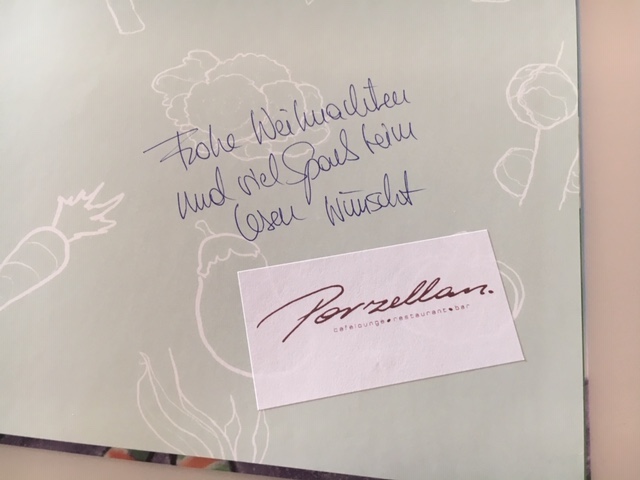 Frohe Weihnachten
und viel Spaß beim
Lesen wünscht
Porzellan.
cafélounge•restaurant•bar